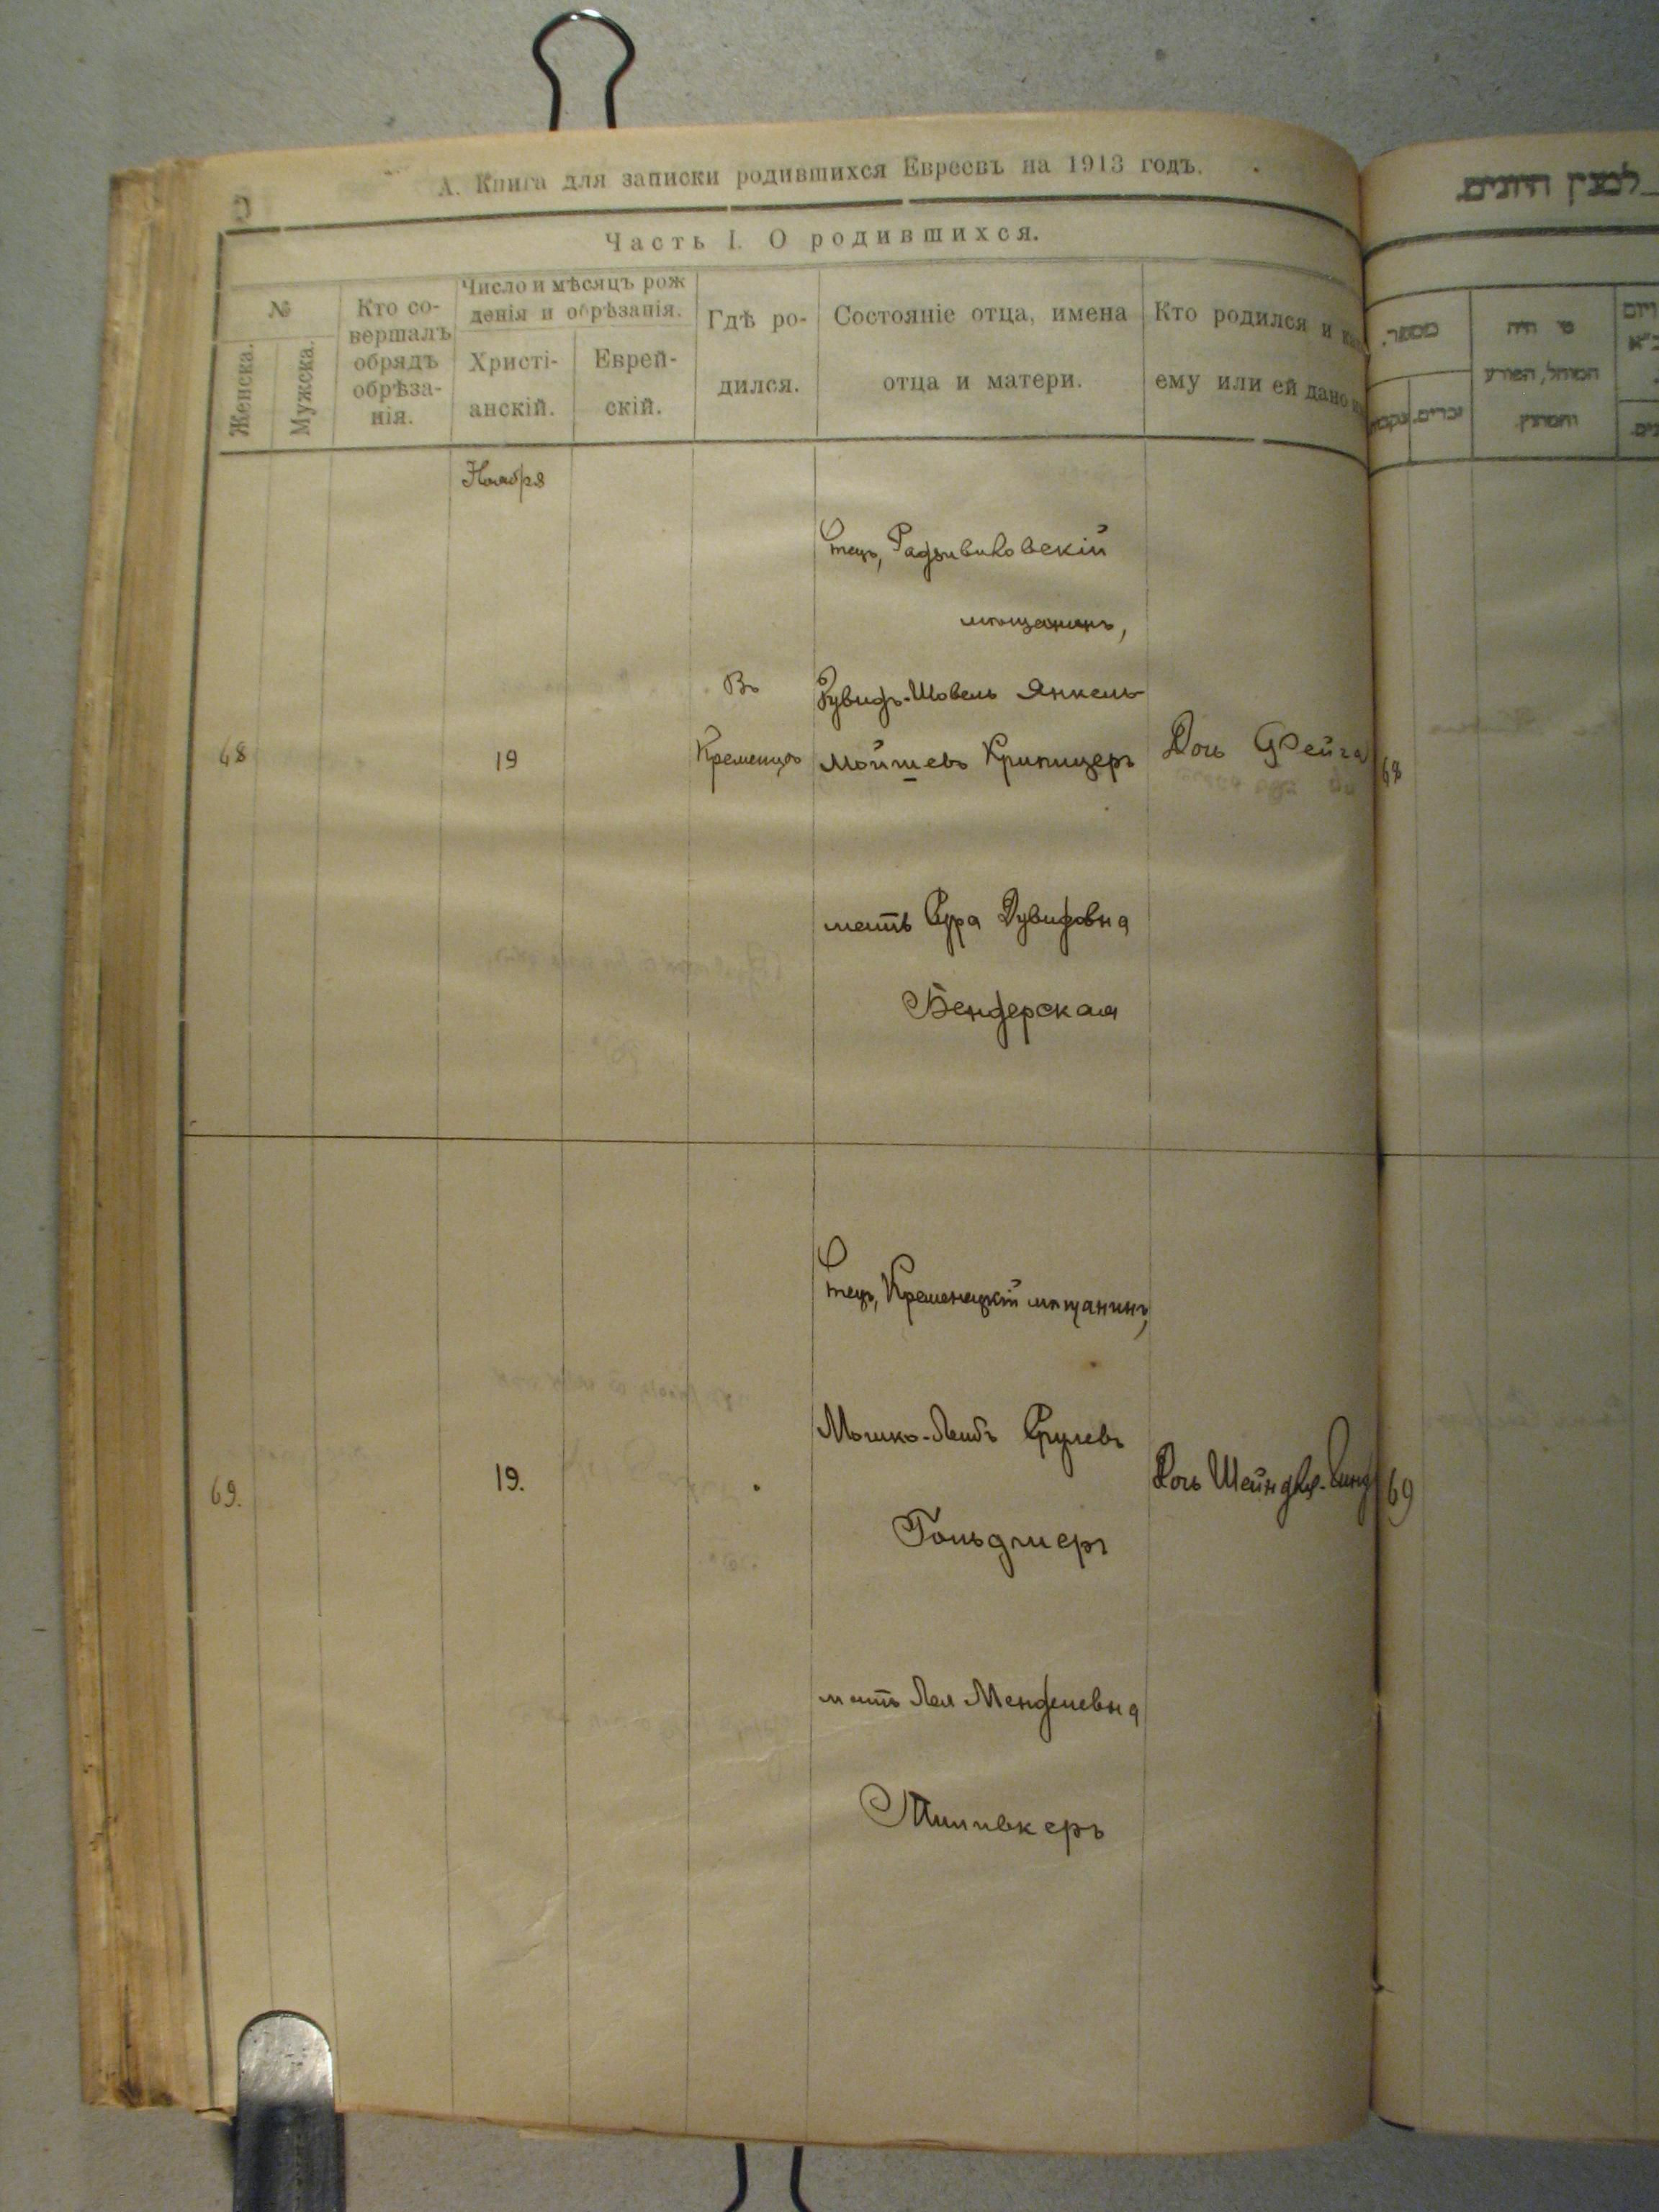 А. Книга для записки родившихся Евреевъ на 1913 годъ.
Часть I. О родившихся.
№
Женска.
Мужска.
Кто со-
вершалъ
обрядъ
обрѣза-
нія.
Число и мѣсяцъ рож
денія и обрѣзанія.
Христі-
анскій.
Еврей-
скій.
Гдѣ ро-
дился.
Состояніе отца, имена
отца и матери.
Кто родился и
ему или ей дано
Ноября
68
19
Въ
Кременцѣ
Отецъ, Радзивиловскій
мѣщанинъ,
Дувидъ-Шовель Янкель
Мойшевъ Крипицеръ
мать Сура Дувидовна
Бендерская
Дочь Фейга
68
69.
19.
Отецъ, Кременецкій мѣщанинъ,
Мошко-Лейбъ Срулевъ
Гольдшеръ
мать Лея Менделевна
Дочь Шейндля-
69
מספר.
זכרים.
מי היה
המוהל, הפורע
והמוצץ.